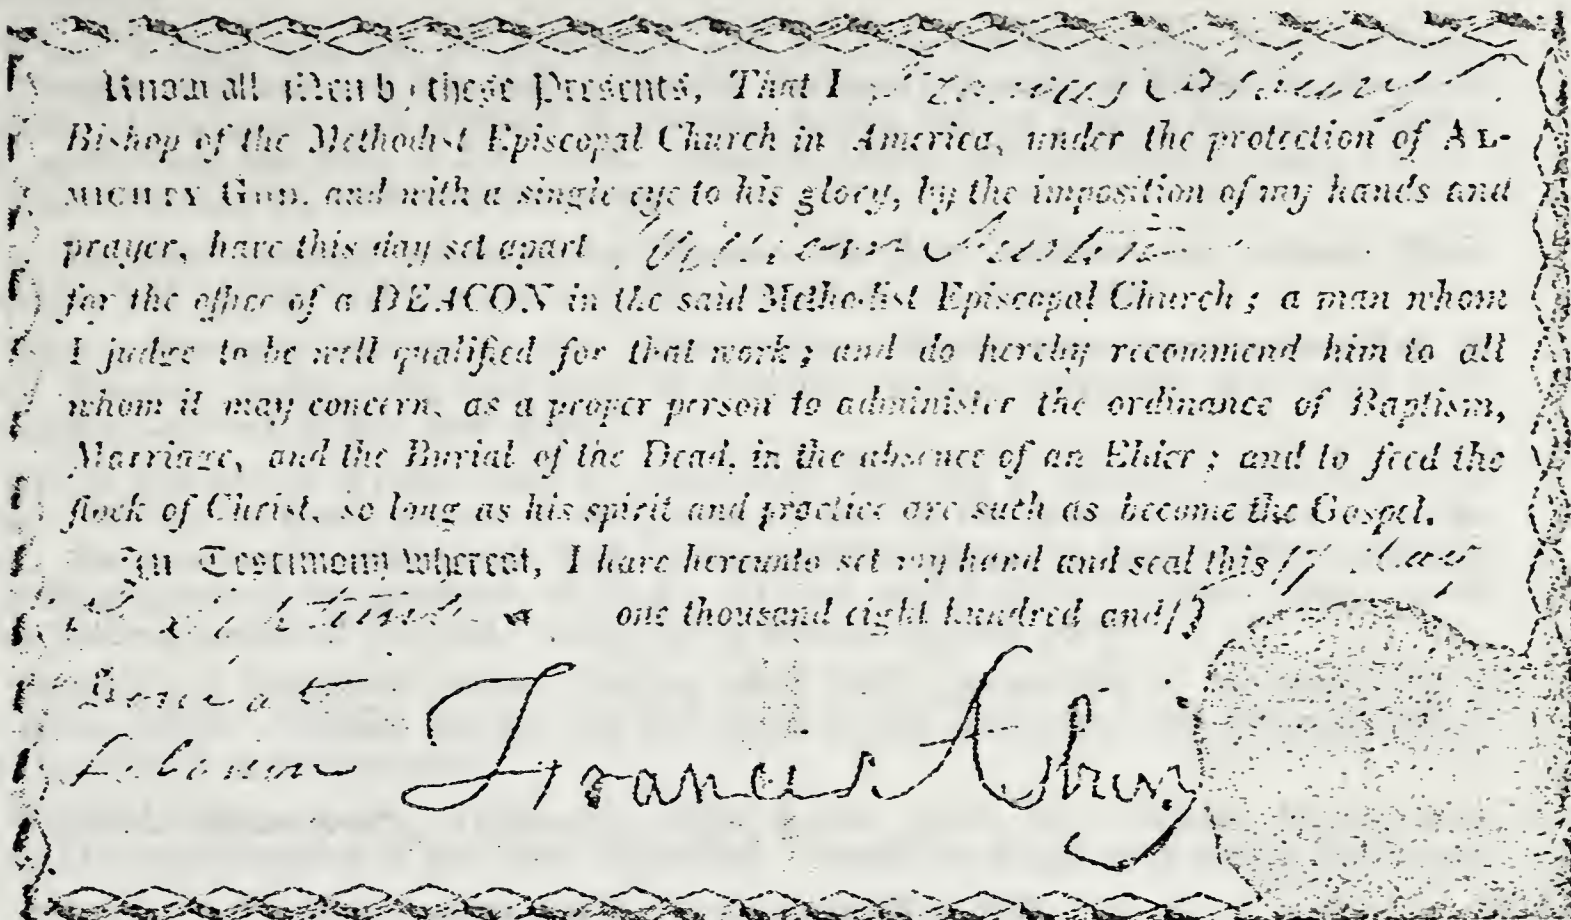 Know all Men by these Presents, That I Francis Asbury
Bishop of the Methodist Episcopal Church in America, under the protection of AL-
MIGHTY GOD, and with a single eye to his glory, by the imposition of my hands and
prayer, have this day set apart William Austin
for the office of a DEACON in the said Methodist Episcopal Church; a man whom
I judge to be well qualified for that work; and do hereby recommend him to all
whom it may concern, as a proper person to administer the ordinance of Baptism,
Marriage, and the Burial of the Dead, in the absence of an Elder; and to feed the
flock of Christ, so long as his spirit and practice are such as become the Gospel.
In Testimony whereof, I have hereunto set my hand and seal this 17 day
one thousand eight hundred and 13
Done at
Lebanon Francis Asbury